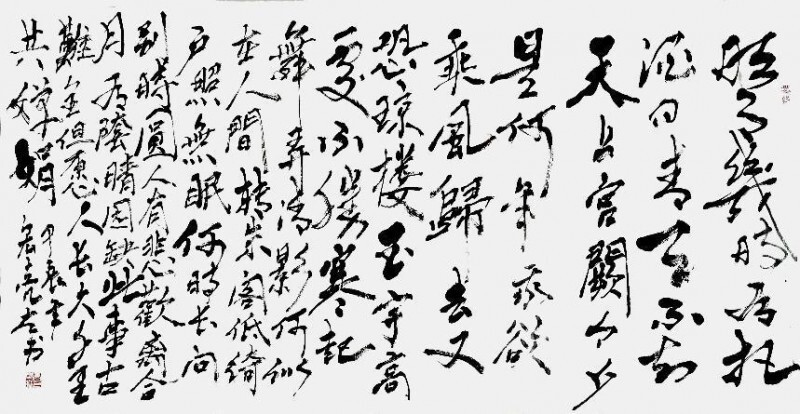 明月幾時有把
酒问青天不知
天上宫闕今夕
是何年我欲
乘風歸去又
恐琼楼玉宇高
處不勝寒起
舞弄清影何似
在人間转朱阁低绮
户照無眠何時长向
别時圆人有悲歡离合
月有陰晴圆缺此事古
難全但愿人长久千里
共嬋娟 甲辰年
宏亮左书